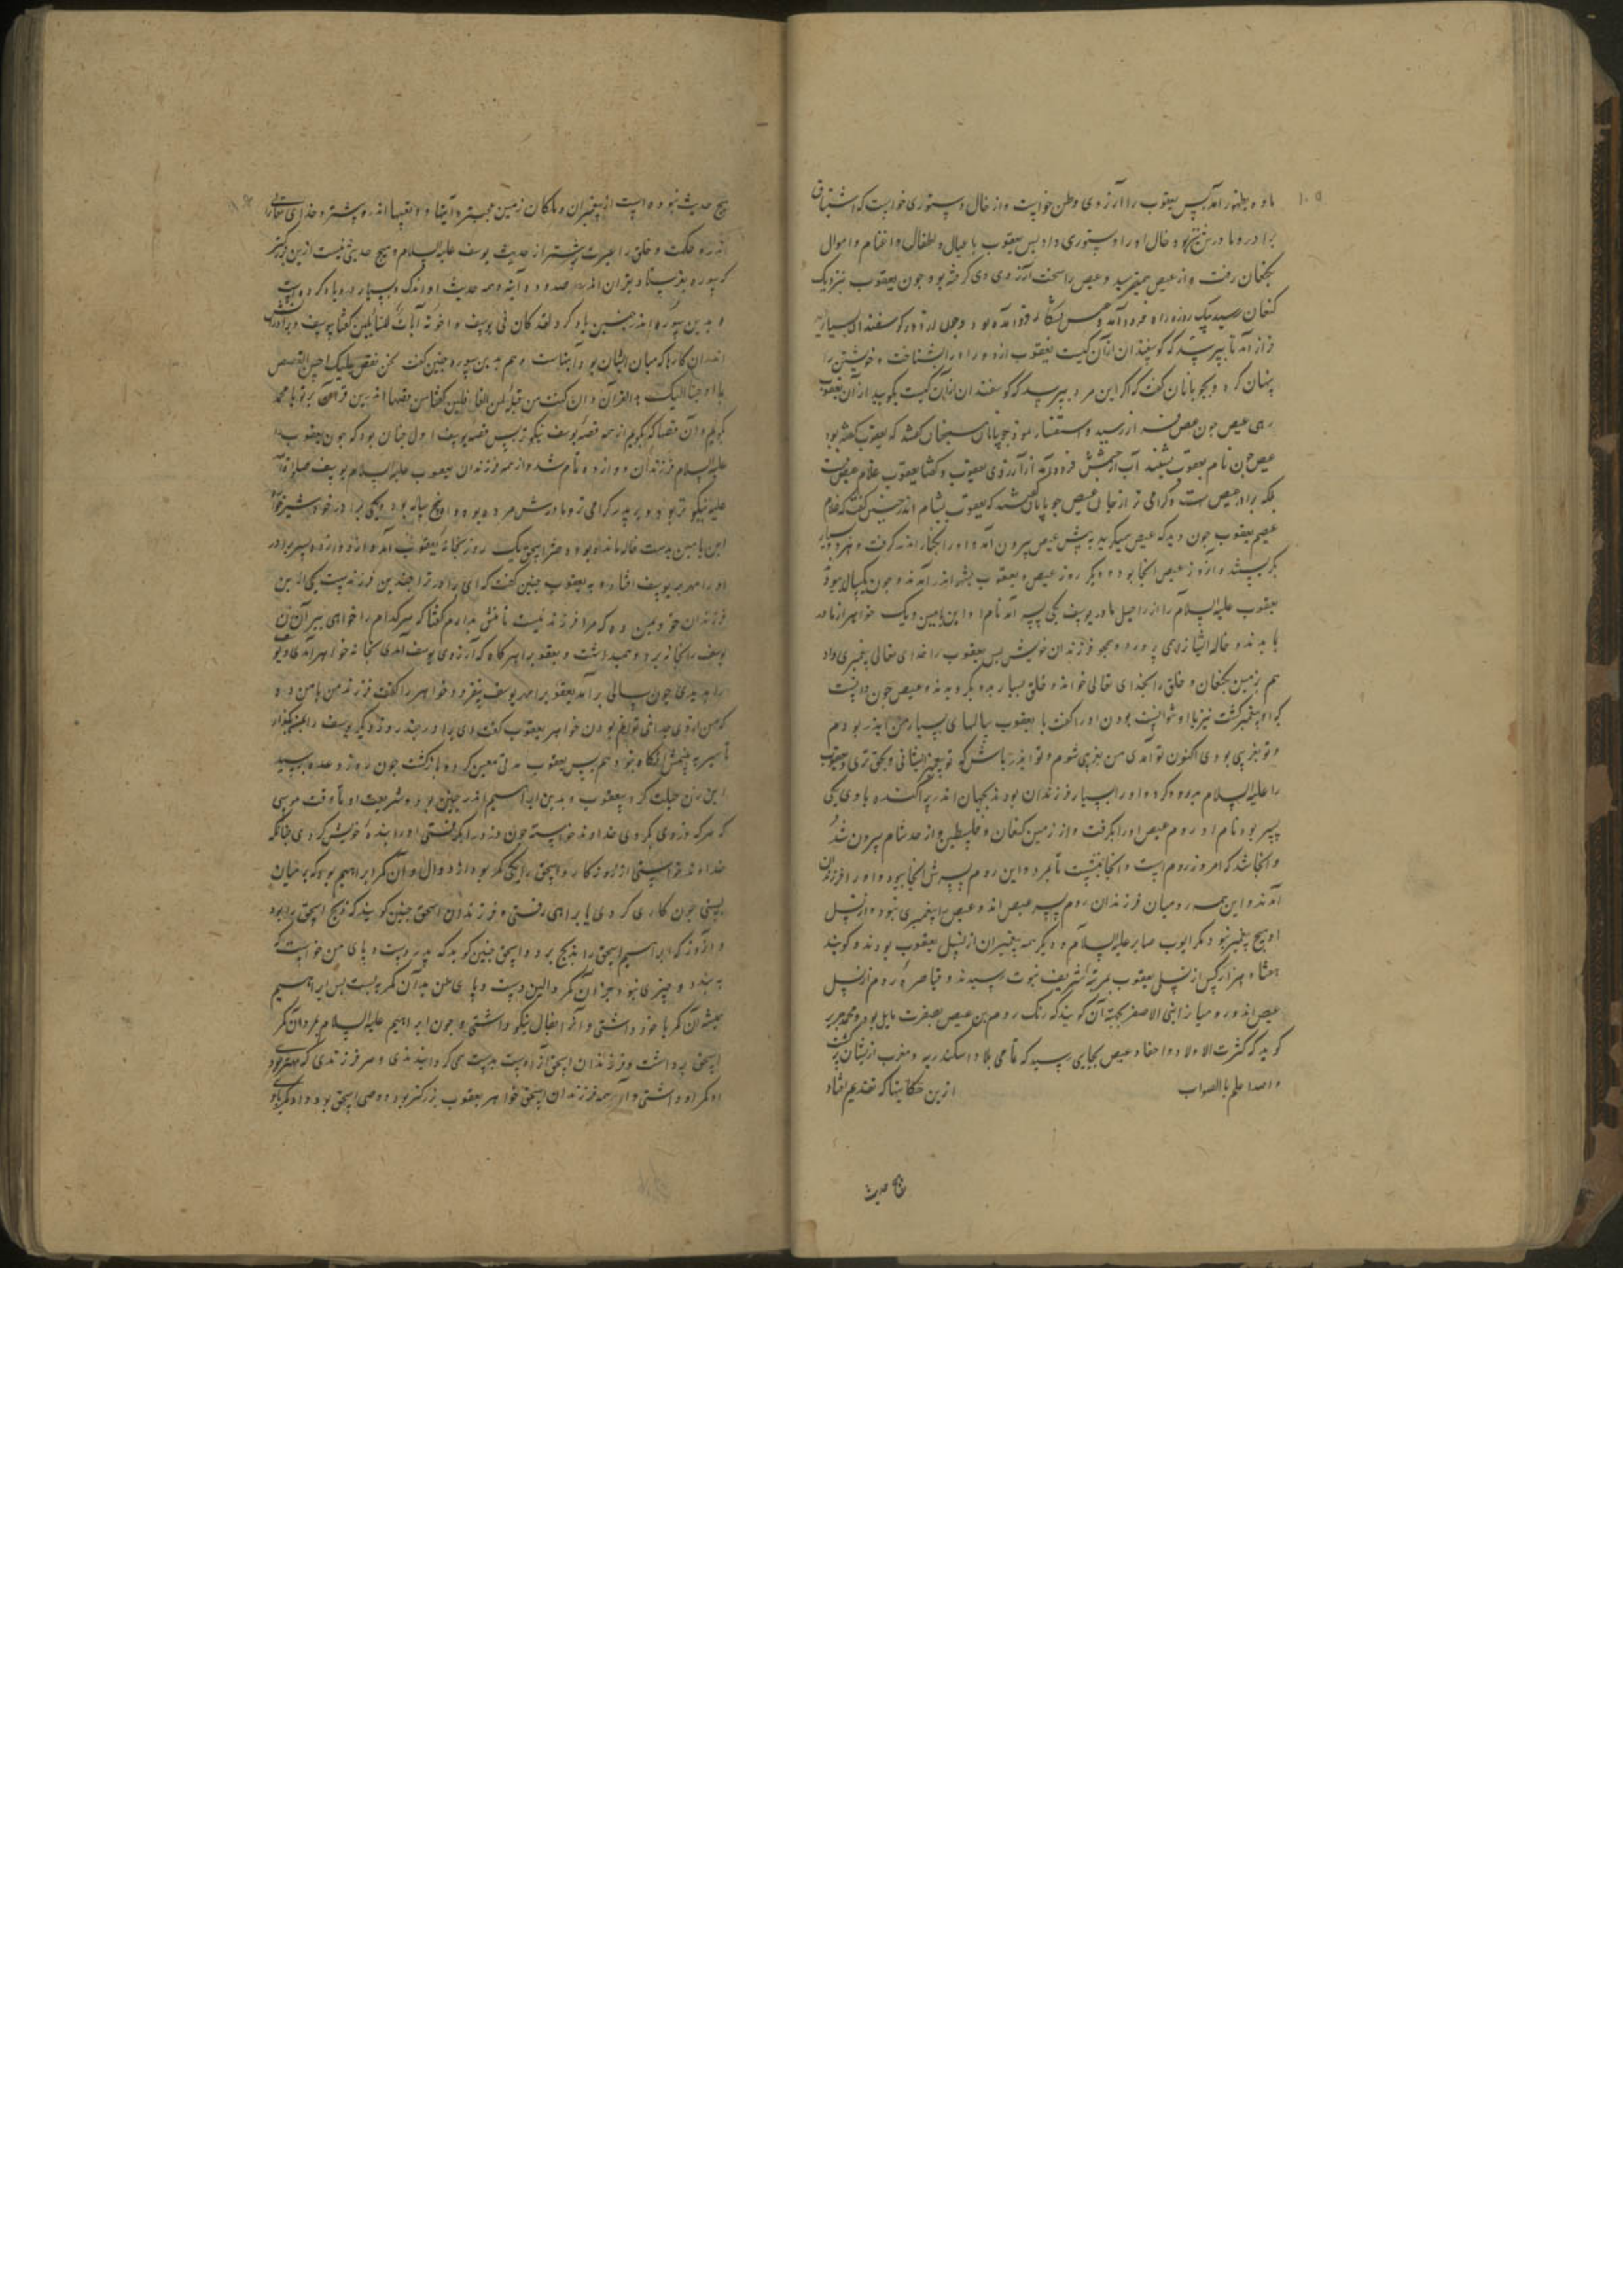 ۱۰۵
ماوه بظهور آمد پس یعقوب را آرزوی وطن خواست و از خال دستوری خواست که اشتیاق
برادر و مادر من نیز بود خال او را دستوری داد پس یعقوب با عیال و اطفال و اغنام و اموال
بکنعان رفت و از عیص همیترسید و عیص را سخت آرزوی وی گرفته بود چون یعقوب بنزدیک
کنعان رسید یک روزه راه فرود آمد و عیص بشکار فرود آمده بود و چون از دور گوسفندان بسیار دید
فراز آمد تا بپرسد که گوسفندان از آن کیست یعقوب از دور او را بشناخت و خویشتن را
پنهان کرد و بچوبانان گفت که اگر این مرد بپرسد که گوسفندان از آن کیست بگویید از آن یعقوب
رهی عیص چون عیص فراز رسید و استفسار نمود چوپانان سخنان گفتند که یعقوب گفته بود
عیص چون نام یعقوب بشنید آب از چشمش فرود آمد از آرزوی یعقوب و گفتا یعقوب غلام عیص نیست
بلکه برادر عیص است و گرامی تر از جان عیص چوپانان گفتند که یعقوب بشام اندر چنین گفت که غلام
عیصم یعقوب چون دید که عیص میگرید پیش عیص بیرون آمد و او را بکنار اندر گرفت و هر دو بسیار
بگریستند و آن روز عیص آنجا بود و دیگر روز عیص و یعقوب بشهر اندر آمدند و چون یکسال ببود
یعقوب علیه السلام را از راحیل مادر یوسف یکی پسر آمد نام او ابن یامین و یک خواهر از مادر
بماندند و خاله ایشانرا همی پرورد و همچو فرزندان خویش پس یعقوب را خدای تعالی پیغمبری داد
هم بزمین کنعان و خلق را بخدای تعالی خواند و خلق بسیار بدو بگرویدند و عیص چون دانست
که او پیغمبر گشت نیز با او نتوانست بودن او را گفت یا یعقوب سالهای بسیار من ایدر بودم
و تو بغریبی بودی اکنون تو آمدی من بغریبی شوم و تو ایدر باش که تو پیغمبر ایشانی و بحق تری و یعقوب
را علیه السلام بدرود کرد و او را بسیار فرزندان بودند بجهان اندر پراکنده با وی یکی
پسر بود نام او روم عیص او را بگرفت و از زمین کنعان و فلسطین و از حد شام بیرون شد
و آنجا شد که امروز روم است و آنجا بنشست تا بمرد و این روم پسرش آنجا ببود و او را فرزندان
آمدند و این همه رومیان فرزندان روم پسر عیص اند و عیص را پیغمبری نبود و از نسل
او هیچ پیغمبر نبود مگر ایوب صابر علیه السلام و دیگر همه پیغمبران از نسل یعقوب بودند و گویند
هفتاد هزار کس از نسل یعقوب بمرتبه شریف نبوت رسیدند و قیاصره روم از نسل
عیص اند و رومیان را بنی الاصفر بجهت آن گویند که رنگ روم بن عیص بصفرت مایل بود و محمد جریر
گوید که کثرت اولاد و احفاد عیص بجایی رسید که تمامی بلاد اسکندریه و مغرب از ایشان پر گشت
والله اعلم بالصواب از بن حکایتها که تقدیم افتاد
هیچ حدیث نبوده است از پیغمبران و ملکان زمین عجبتر و آیتها و تعبیها اندرو بیشتر و خدای تعالی را
اندرو حکمت و خلق را عبرت بیشتر از حدیث یوسف علیه السلام و هیچ حدیثی نیست ازین بزرگتر
که سوره بفرستاد بقرآن اندر صد و ده آیه و همه حدیث او اندک و بسیار درو یاد کرده است
و بدین سوره اندر چنین یاد کرد لقد کان فی یوسف و اخوته آیات للسائلین گفتا یوسف و برادرانش
اندران کارها که میان ایشان بود آیتهاست و هم بدین سوره چنین گفت نحن نقص علیک احسن القصص
بما اوحینا الیک هذا القرآن و ان کنت من قبله لمن الغافلین گفتا من قصها اندرین قرآن بر تو یا محمد
بگویم و آن قصها که بگویم از همه قصه یوسف نیکوتر پس قصه یوسف اول چنان بود که چون یعقوب را
علیه السلام فرزندان دوازده تمام شد و از همه فرزندان یعقوب علیه السلام یوسف صلوات الله
علیه نیکوتر بود و بر پدر گرامی تر و مادرش مرده بود و او پنج ساله بود و یکی برادر خورد شیرخواره
ابن یامین بدست خاله مانده بود و دختر اسحق یک روز بخانه یعقوب آمد و از دوازده پسر برادر
او را مهر بر یوسف افتاد و به یعقوب چنین گفت که ای برادر ترا چندین فرزندست یکی از این
فرزندان خود بمن ده که مرا فرزند نیست تا منش بدارم گفتا که هر کدام را خواهی ببر آن زن
یوسف را بخانه برد و همیداشت و یعقوب را هر گاه که آرزوی یوسف آمدی بخانه خواهر آمدی و یوسف
را بدیدی چون سالی برآمد یعقوب را مهر یوسف بیفزود و خواهر را گفت فرزند من بامن ده
که من از وی جدا نمی توانم بودن خواهر یعقوب گفت ای برادر چند روز دیگر یوسف را بمن بگذار
تا سیر به چشمش نگاه بتوانم پس یعقوب مدتی معین کرد و بازگشت چون روز وعده برسید
این زن حیلت کرد بیعقوب و بدین ابراهیم اندر چنین بود و شریعت او تا وقت موسی
که هر که دزدی بکردی خداوند خواسته چون دزد را بگرفتی او را بنده خویش کردی چنانکه
خداوند خواستی از او کار و اسحق را یکی کمر بود از دوال و آن کمر ابراهیم بود که بر میان
بستی چون کاری کردی یا براهی رفتی و فرزندان اسحق چنین گویند که ذبیح اسحق بوده بود
و آن روز که ابراهیم اسحق را بذبح برد و اسحق چنین گوید که پدر دست و پای من خواست که
ببندد و چیزی نبود بجز آن کمر والین دست و پای من بدان کمر ببست پس ابراهیم
همیشه آن کمر با خود داشتی و آنرا بفال نیکو داشتی و چون ابراهیم علیه السلام بمرد آن کمر
اسحق برداشت و فرزندان اسحق آنرا دست بدست می گردانیدندی و هر فرزندی که مهتر بودی
او کمر او داشتی و از همه فرزندان اسحق خواهر یعقوب بزرگتر بود و وصی اسحق بود و او کمر با او
هیچ حدیث